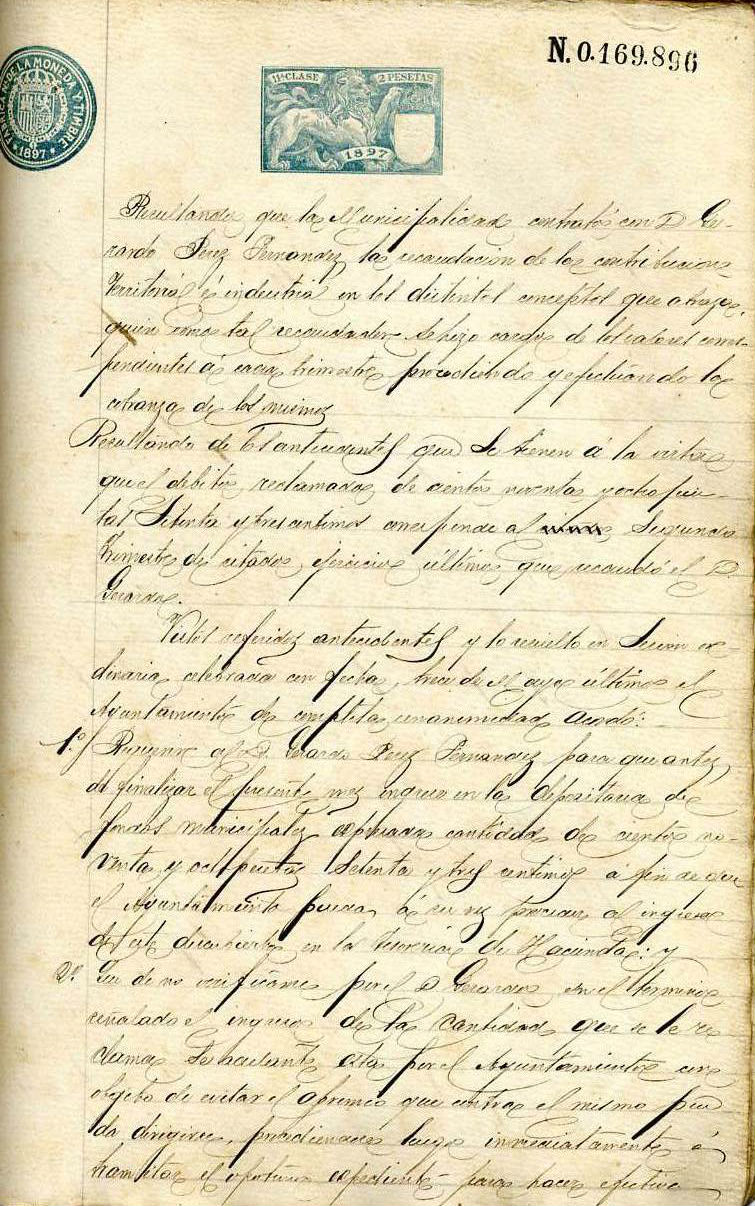 N. 0.169.896
FABRICA N. DE LA MONEDA Y TIMBRE
1897
11ª CLASE 2 PESETAS
1897
Resultando que la Municipalidad contrató con D Ge-
rardo Perez Fernandez la recaudacion de las contribuciones
territorial é industrial en los distintos conceptos que abraza,
quien como tal recaudador se hizo cargo de los valores corres-
pendientes á cada trimestre procediendo y efectuando la
cobranza de los mismos
Resultando de los antecedentes que se tienen á la vista
que el debito reclamado de ciento noventa y ocho pese-
tas setenta y tres centimos corresponde al segundo
trimestre de citado ejercicio último que recaudó el D.
Gerardo.
Vistos referidos antecedentes y lo resuelto en sesion or
dinaria celebrada con fecha trece de Mayo último el
Ayuntamiento de completa unanimidad acordó:
1.º Requerir al D. Gerardo Perez Fernandez para que antes
de finalizar el presente mes ingrese en la depositaria de
fondos municipales expresada cantidad de ciento no-
venta y ocho pesetas setenta y tres centimos á fin de que
el Ayuntamiento pueda á su vez proceder al ingreso
de este descubierto en la tesoreria de Hacienda; y
2º. Que de no verificarse por el D Gerardo en el termino
señalado el ingreso de la cantidad que se le re
clama se haelante esta por el Ayuntamiento con
objeto de evitar el apremio que contra el mismo pue
da dirigirse, procediendose luego inmediatamente á
tramitar el oportuno espediente para hacer efectiva